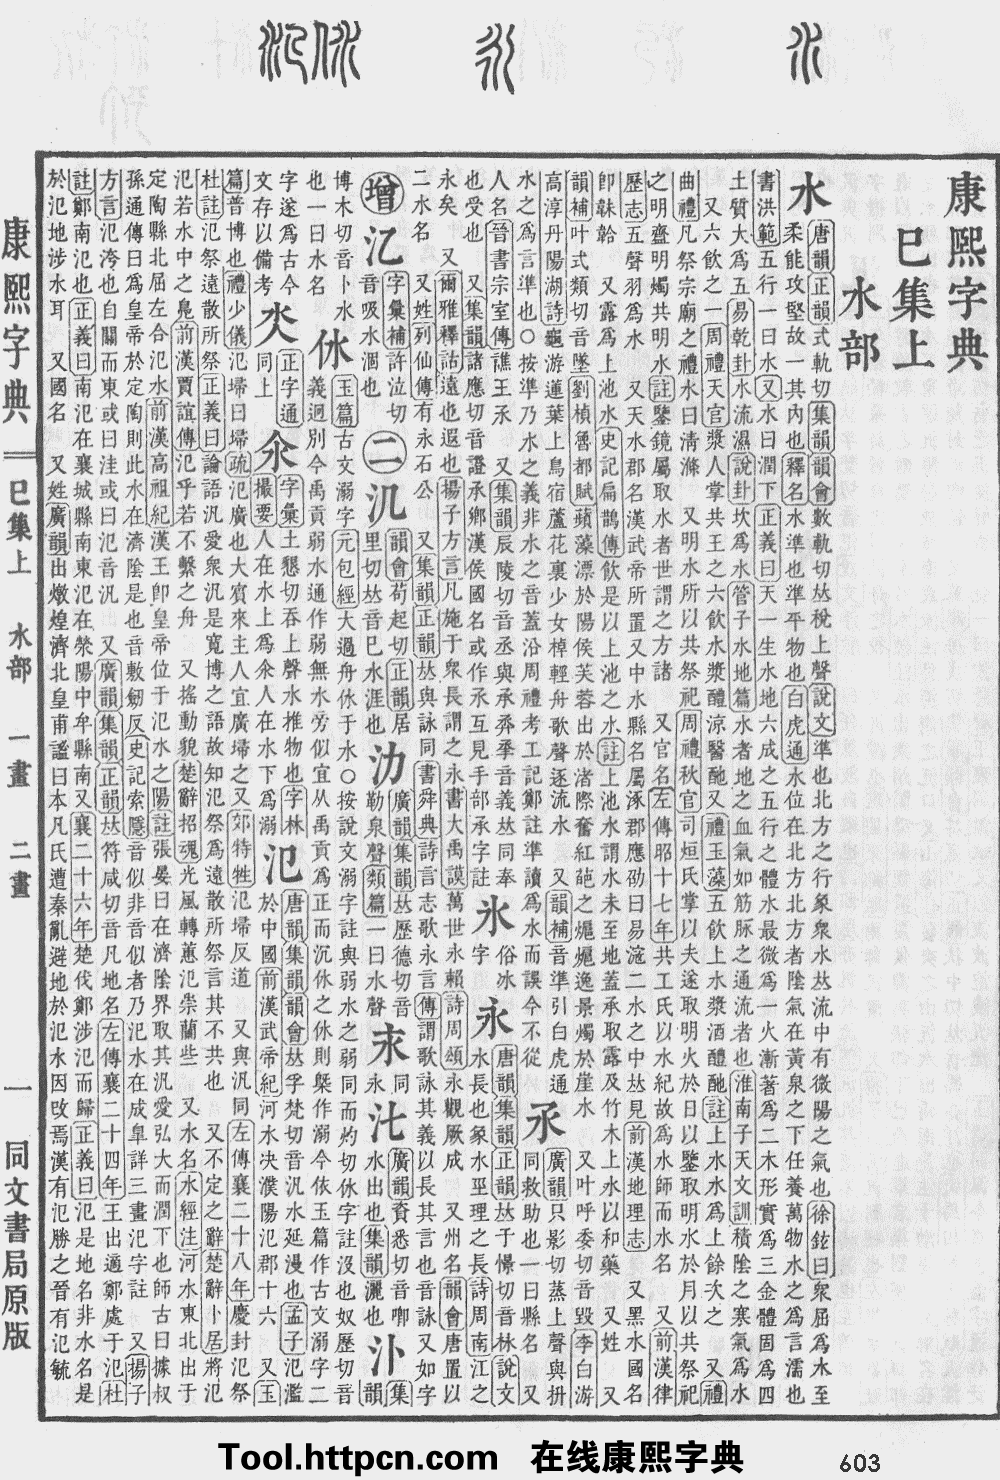 康熙字典
巳集上
水部
水 唐韻正韻式軌切集韻韻會數軌切𠀤稅上聲說文準也北方之行象衆水𠀤流中有微陽之氣也徐鉉曰衆屈爲水至
柔能攻堅故一其內也釋名水準也準平物也白虎通水位在北方北方者陰氣在黃泉之下任養萬物水之爲言濡也
書洪範五行一曰水又水曰潤下正義曰天一生水地六成之五行之體水最微爲一火漸著爲二木形實爲三金體固爲四
土質大爲五易乾卦水流濕說卦坎爲水管子水地篇水者地之血氣如筋脉之通流者也淮南子天文訓積陰之寒氣爲水
又六飮之一周禮天官漿人掌共王之六飮水漿醴涼醫酏又禮玉藻五飮上水漿酒醴酏註上水水爲上餘次之 又禮
曲禮凡祭宗廟之禮水曰清滌 又明水所以共祭祀周禮秋官司烜氏掌以夫遂取明火於日以鑒取明水於月以共祭祀
之明齍明燭共明水註鑒鏡屬取水者世謂之方諸 又官名左傳昭十七年共工氏以水紀故爲水師而水名 又前漢律
歷志五聲羽爲水 又天水郡名漢武帝所置又中水縣名屬涿郡應劭曰易滱二水之中𠀤見前漢地理志 又黑水國名
卽靺鞈 又露爲上池水史記扁鵲傳飮是以上池之水註上池水謂水未至地蓋承取露及竹木上水以和藥 又姓 又
韻補叶式類切音墜劉楨魯都賦蘋藻漂於陽侯芙蓉出於渚際奮紅葩之逸景燭於崖水 又叶呼委切音毀李白游
高淳丹陽湖詩龜游蓮葉上鳥宿蘆花裏少女棹輕舟歌聲逐流水 又韻補音準引白虎通
水之爲言準也○按準乃水之義非水之音蓋沿周禮考工記鄭註準讀爲水而誤今不從
氶 廣韻只影切蒸上聲與拼同救助也一曰縣名 又
人名晉書宗室傳譙王氶 又集韻辰陵切音丞與承丞𠀤同奉
也受也 又集韻諸應切音證承鄉漢侯國名或作氶互見手部承字註
氷 俗冰字
永 唐韻集韻正韻𠀤于憬切音林說文水長也象水巠理之長詩周南江之
永矣 又爾雅釋詁遠也遐也揚子方言凡施于衆長謂之永書大禹謨萬世永賴詩周頌永觀厥成 又州名韻會唐置以
二水名 又姓列仙傳有永石公 又集韻正韻𠀤與詠同書舜典詩言志歌永言傳謂歌詠其義以長其言也音詠又如字
增 㲸 字彙補許泣切音吸水涸也
二 氿 韻會荀起切正韻居里切𠀤音巳水涯也
氻 廣韻集韻𠀤歷德切音勒泉聲類篇一曰水聲
永同
廣韻資悉切音唧水出也集韻灑也
汴 集韻
博木切音卜水名也一曰水名
㲻 玉篇古文溺字元包經大過舟㲻于水○按說文溺字註與弱水之弱同而灼切㲻字註沒也奴歷切音
義迥別今禹貢弱水通作弱無水旁似宜从禹貢爲正而沉㲻之㲻則槩作溺今依玉篇作古文溺字二
字遂爲古今文存以備考
正字通同上
氽 字彙土懇切吞上聲水推物也字林撮要人在水上爲氽人在水下爲溺
氾 唐韻集韻韻會𠀤孚梵切音汎水延漫也孟子氾濫
於中國前漢武帝紀河水決濮陽氾郡十六 又玉
篇普博也禮少儀氾埽曰埽疏氾廣也大賔來主人宜廣埽之又郊特牲氾埽反道 又與汎同左傳襄二十八年慶封氾祭
杜註氾祭遠散所祭正義曰論語汎愛衆汎是寬博之語故知氾祭爲遠散所祭言其不共也 又不定之辭楚辭卜居將氾
氾若水中之鳧前漢賈誼傳氾乎若不繫之舟 又搖動貌楚辭招魂光風轉蕙氾崇蘭些 又水名水經注河水東北出于
定陶縣北屈左合氾水前漢高祖紀漢王卽皇帝位于氾水之陽註張晏曰在濟陰界取其汎愛弘大而潤下也師古曰據叔
孫通傳曰爲皇帝於定陶則此水在濟陰是也音敷劒反史記索隱音似非音似者乃氾水在成臯詳三畫氾字註 又揚子
方言氾洿也自關而東或曰注或曰氾音汎 又廣韻集韻正韻𠀤符咸切音凡地名左傳襄二十四年王出適鄭處于氾杜
註鄭南氾也正義曰南氾在襄城縣南東氾在滎陽中牟縣南又襄二十六年楚伐鄭涉氾而歸正義曰氾是地名非水名是
於氾地涉水耳 又國名 又姓廣韻出燉煌濟北皇甫謐曰本凡氏遭秦亂避地於氾水因攺焉漢有氾勝之晉有氾毓
康熙字典 巳集上 水部 一畫 二畫 一 同文書局原版
Tool.httpcn.com 在线康熙字典
603